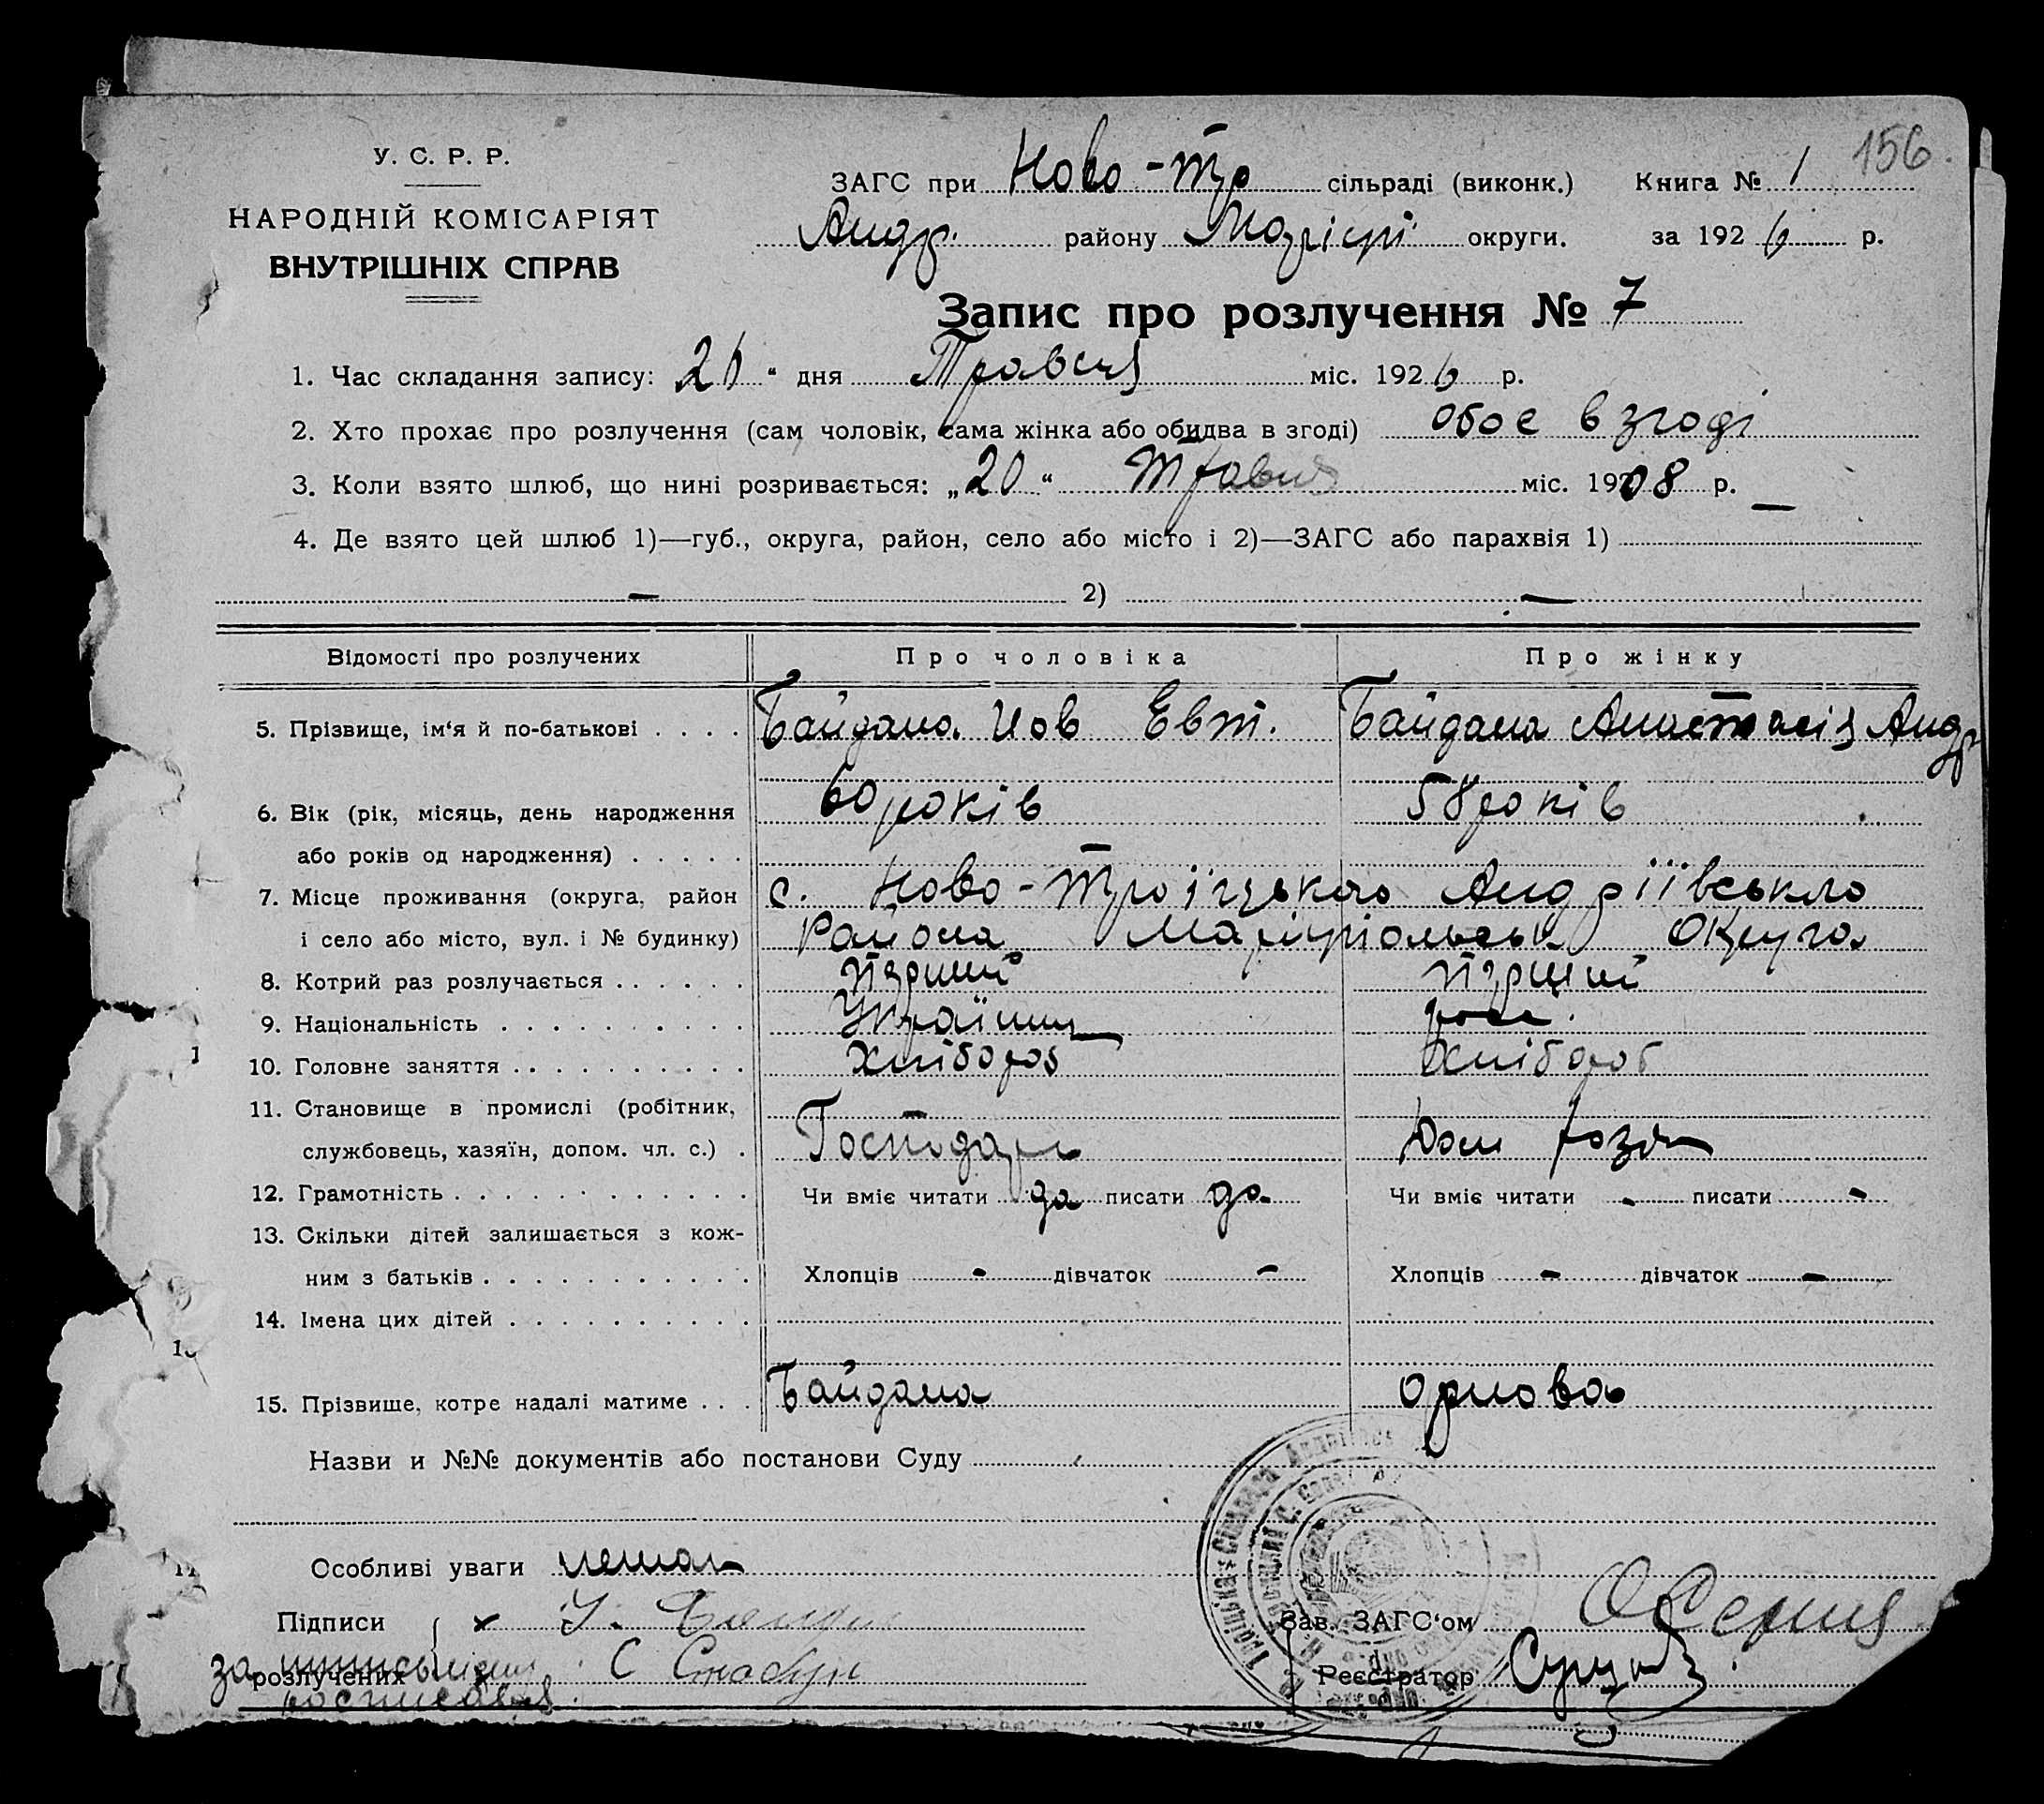 156.
У. С. Р. Р.
НАРОДНІЙ КОМІСАРІЯТ
ВНУТРІШНІХ СПРАВ
ЗАГС при Ново-Тр сільраді (виконк.) Книга № 1
Андр. району округи. за 1926 р.
Запис про розлучення № 7
1. Час складання запису: 26 “ дня Травня міс. 1926 р.
2. Хто прохає про розлучення (сам чоловік, сама жінка або обидва в згоді) обоє в згоді
3. Коли взято шлюб, що нині розривається: „20“ Травня міс. 1908 р.
4. Де взято цей шлюб 1)—губ., округа, район, село або місто і 2)—ЗАГС або парахвія 1)
— 2) —
Відомості про розлучених Про чоловіка Про жінку
5. Прізвище, ім‘я й по-батькові . . . . Байдана Иов Евт. Байдана Анастасія Андр
6. Вік (рік, місяць, день народження 60 років 58 років
або років од народження) . . . . .
7. Місце проживання (округа, район с. Ново-Троїцького Андріївського
і село або місто, вул. і № будинку) Района Маріупольськ Округа
8. Котрий раз розлучається . . . . . . Перший Перший
9. Національність . . . . . . . . . . Українец рос.
10. Головне заняття . . . . . . . . . . Хлібороб Хлібороб
11. Становище в промислі (робітник,
службовець, хазяїн, допом. чл. с.) . Господарь Дом хозя
12. Грамотність . . . . . . . . . . . . Чи вміє читати да писати да Чи вміє читати - писати -
13. Скільки дітей залишається з кож-
ним з батьків . . . . . . . . . . . Хлопців - дівчаток - Хлопців - дівчаток -
14. Імена цих дітей . . . . . . . . . .
15. Прізвише, котре надалі матиме . . . Байдана Орлова
Назви и №№ документів або постанови Суду
Особливі уваги немає
Підписи Зав. ЗАГС‘ом
за розлучених С Реєстратор